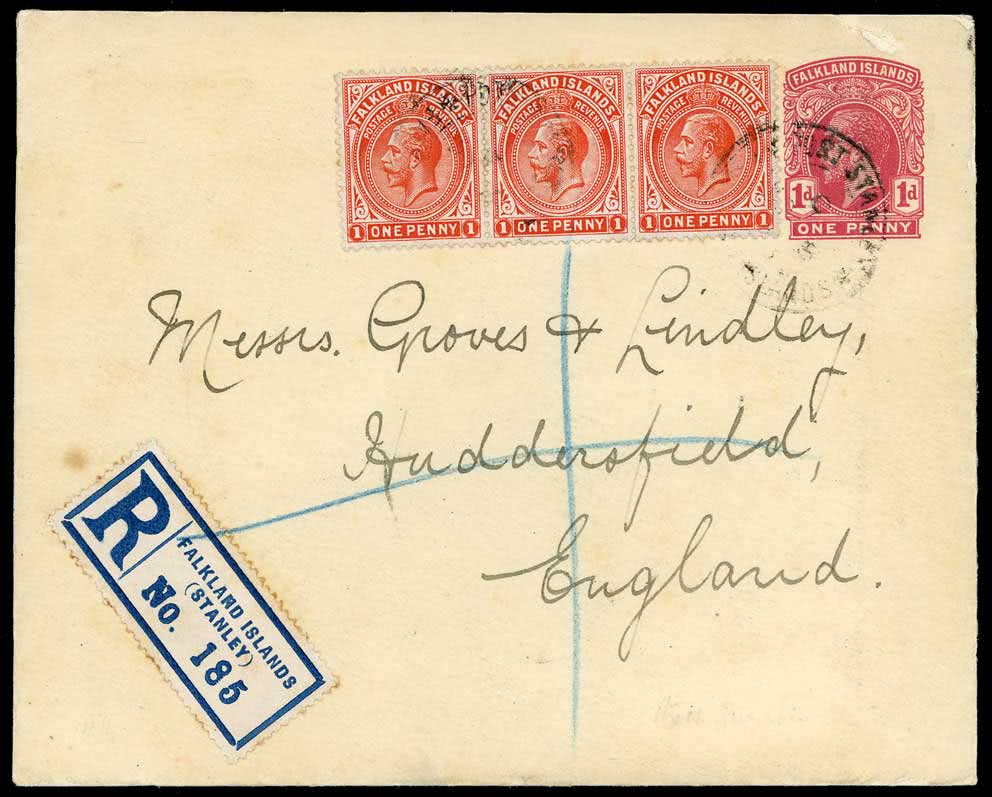 FALKLAND ISLANDS
POSTAGE REVENUE
1 ONE PENNY 1
FALKLAND ISLANDS
POSTAGE REVENUE
1 ONE PENNY 1
FALKLAND ISLANDS
POSTAGE REVENUE
1 ONE PENNY 1
FALKLAND ISLANDS
1d 1d
ONE PENNY
Messrs. Groves & Lindley,
Huddersfield,
England.
R
FALKLAND ISLANDS
(STANLEY)
No. 185